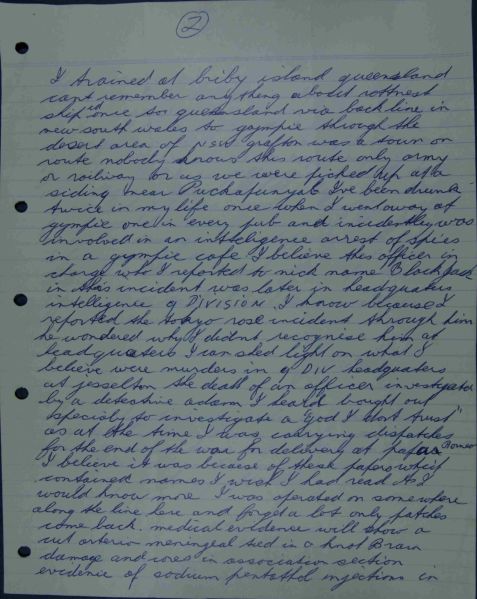 2
I trained at briby island queensland
cant remember anything about rottnest
ship once to queensland via back line in
new south wales to gympie through the
desert area of NSW grafton was a town on
route nobody knows this route only army
or railway for us we were picked up at a
siding near Puckapunyal I've been drunk
twice in my life once when I went away at
gympie one in every pub and incidentley was
involved in an intelligence arrest of spies
in a gympie cafe I believe this officer in
charge who I reported to nick name Blackjack
in this incident was later in headquaters
intelligence 9 DIVISION. I know because I
reported the tokyo rose incident through him
he wondered why I didnt recognise him at
headquaters I can shed light on what I
believe were murders in 9 DIV headquaters
at jesselton the death of an officer investigator
by a detective adam I heard bought out
especialy to investigate a "God I dont trust"
as at the time I was carrying dispatches
for the end of the war for delivery at papar Borneo
I believe it was because of these papers which
contained names I wish I had read as I
would know more I was operated on somewhere
along the line here and forget a lot only patches
come back. medical evidence will show a
cut arterio meningeal tied in a knot Brain
damage and cores in association section
evidence of sodium pentathol injections in